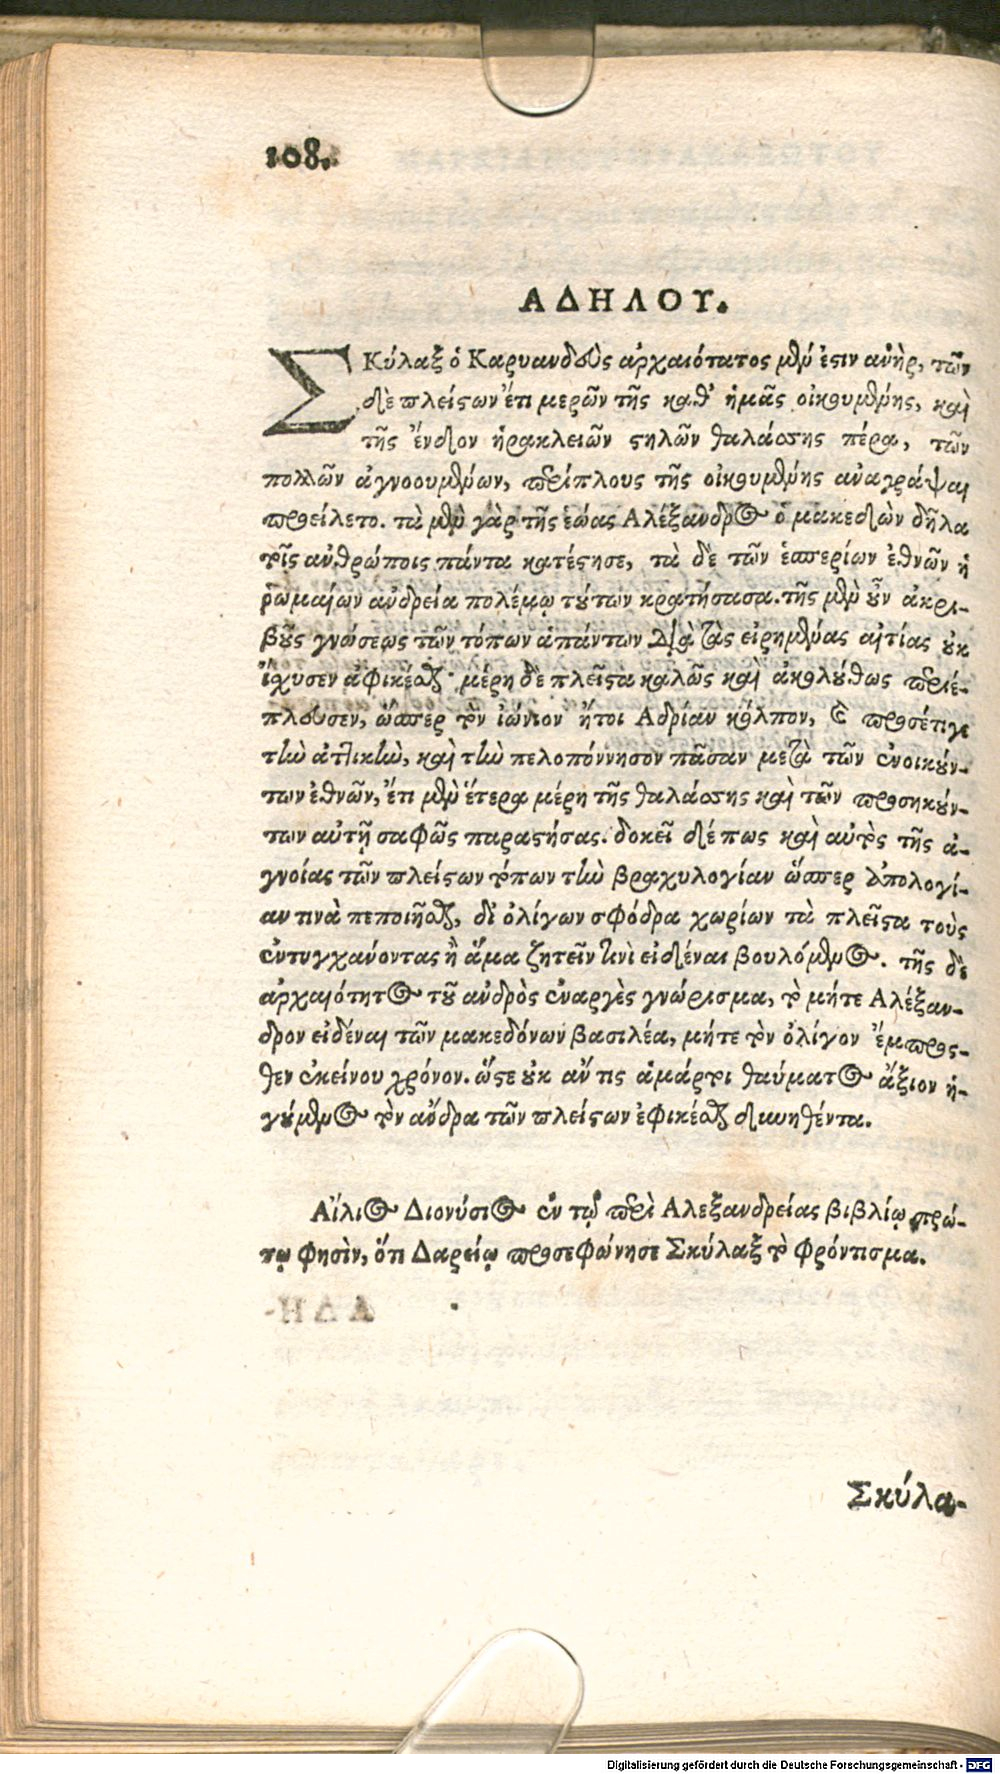 108.
ΑΔΗΛΟΥ.
ΣΚύλαξ ὁ Καρυανδοὺς ἀρχαιότατος μὲν ἐστιν ἀνὴρ, τῶν
δὲ πλείστων ἔτι μερῶν τῆς καθ' ἡμᾶς οἰκουμένης, καὶ
τῆς ἔνδον ἡρακλειῶν στηλῶν θαλάσσης πέρα, τῶν
πολλῶν ἀγνοουμένων, περίπλους τῆς οἰκουμένης ἀναγράψαι
προείλετο. τὰ μὲν γὰρ τῆς ἑώας Αλέξανδρος ὁ μακεδὼν δῆλα
τοῖς ἀνθρώποις πάντα κατέστησε, τὰ δὲ τῶν ἑσπερίων ἐθνῶν ἡ
ῥωμαίων ἀνδρεία πολέμῳ τούτων κρατήσασα. τῆς μὲν οὖν ἀκρι-
βοῦς γνώσεως τῶν τόπων ἁπάντων διὰ τὰς εἰρημένας αἰτίας οὐκ
ἴσχυσεν ἀφικέσθαι· μέρη δὲ πλεῖστα καλῶς καὶ ἀκολούθως περιέ-
πλουσεν, ὥσπερ τὸν ἰώνιον ἤτοι Αδρίαν κόλπον, καὶ προσέτιγε
τὴν ἀττικὴν, καὶ τὴν πελοπόννησον πᾶσαν μετὰ τῶν ἐνοικούν-
των ἐθνῶν, ἔτι μὲν ἕτερα μέρη τῆς θαλάσσης καὶ τῶν προσηκόν-
των αὐτῇ σαφῶς παραστήσας. δοκεῖ δέ πως καὶ αὐτὸς τῆς ἀ-
γνοίας τῶν πλείστων τόπων τὴν βραχυλογίαν ὥσπερ ἀπολογί-
αν τινὰ πεποιῆσθαι, δι' ὀλίγων σφόδρα χωρίων τὰ πλεῖστα τοὺς
ἐντυγχάνοντας ἢ ἅμα ζητεῖν καὶ εἰδέναι βουλόμενος. τῆς δὲ
ἀρχαιότητος τοῦ ἀνδρὸς ἐναργὲς γνώρισμα, τὸ μήτε Αλέξαν-
δρον εἰδέναι τῶν μακεδόνων βασιλέα, μήτε τὸν ὀλίγον ἔμπροσ-
θεν ἐκείνου χρόνον. ὥστε οὐκ ἄν τις ἁμάρτοι θαύματος ἄξιον ἡ-
γούμενος τὸν ἄνδρα τῶν πλείστων ἐφικέσθαι δυνηθέντα.
Αἴλιος Διονύσιος ἐν τῷ περὶ Αλεξανδρείας βιβλίῳ πρώ-
τῳ φησὶν, ὅτι Δαρείῳ προσεφώνησε Σκύλαξ τὸ φρόντισμα.
Σκύλα-
Digitalisierung gefördert durch die Deutsche Forschungsgemeinschaft - DFG